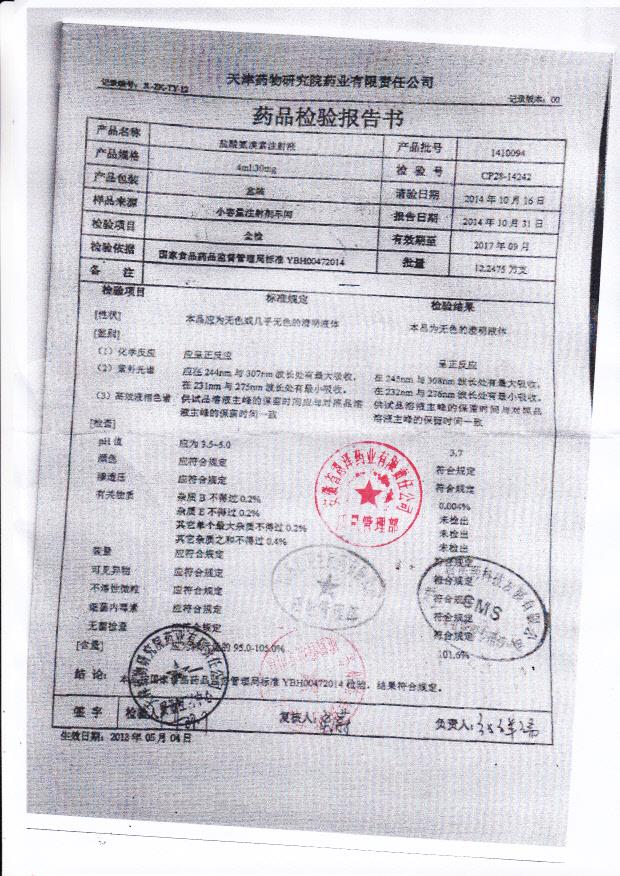 天津药物研究院药业有限责任公司
记录编号: JL-ZK-TY-12 记录版本: 00
药品检验报告书
产品名称 盐酸氨溴索注射液 产品批号 1410094
产品规格 4ml:30mg 检 验 号 CP28-14242
产品包装 盒装 请验日期 2014 年 10 月 16 日
样品来源 小容量注射剂车间 报告日期 2014 年 10 月 31 日
检验项目 全检 有效期至 2017 年 09 月
检验依据 国家食品药品监督管理局标准 YBH00472014 批量 12.2475 万支
备 注
检验项目 标准规定 检验结果
[性状] 本品应为无色或几乎无色的澄明液体 本品为无色的澄明液体
[鉴别]
(1) 化学反应 应呈正反应 呈正反应
(2) 紫外光谱 应在 244nm 与 307nm 波长处有最大吸收, 在 245nm 与 308nm 波长处有最大吸收,
在 231nm 与 275nm 波长处有最小吸收. 在 232nm 与 276nm 波长处有最小吸收.
(3) 高效液相色谱 供试品溶液主峰的保留时间应与对照品 供试品溶液主峰的保留时间与对照品
溶液主峰的保留时间一致 溶液主峰的保留时间一致
[检查]
pH 值 应为 3.5~5.0 3.7
颜色 应符合规定 符合规定
渗透压 应符合规定 符合规定
有关物质 杂质 B 不得过 0.2% 0.004%
杂质 E 不得过 0.2% 未检出
其它单个最大杂质不得过 0.2% 未检出
其它杂质之和不得过 0.4% 未检出
装量 应符合规定 符合规定
可见异物 应符合规定 符合规定
不溶性微粒 应符合规定 符合规定
细菌内毒素 应符合规定 符合规定
无菌检查 应符合规定 符合规定
[含量] 的 95.0-105.0% 101.6%
结 论: 国家食品药品监督管理局标准 YBH00472014 检验, 结果符合规定。
签 字 检验人 复核人: 负责人:
生效日期: 2013 年 05 月 04 日
药业有限责任公司
质管理部
CMS
天津药物研究院药业有限责任公司